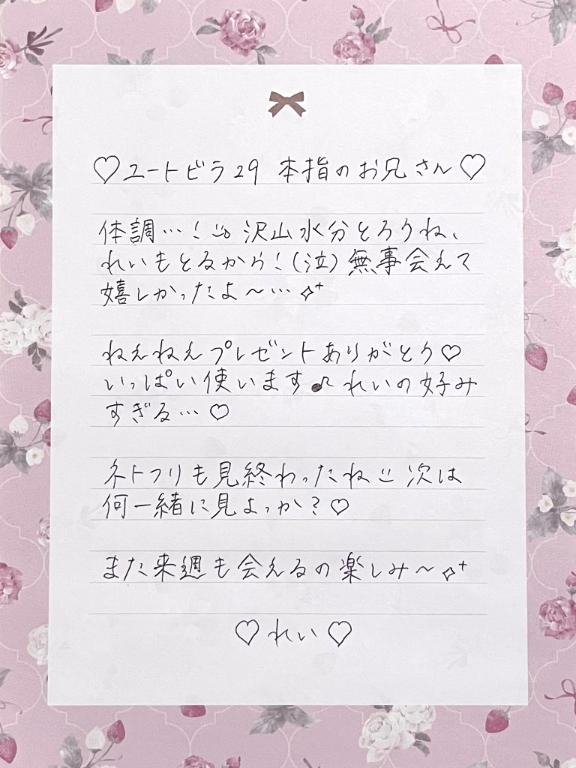 ♡ユートピラ29 本指のお兄さん♡
体調…! 沢山水分とろうね、
れいもとるから!(泣)無事会えて
嬉しかったよ〜…✧⁺
ねえねえプレゼントありがとう♡
いっぱい使います♪れいの好み
すぎる…♡
ネトフリも見終わったね 次は
何一緒に見よっか?♡
また来週も会えるの楽しみ〜✧⁺
♡れい♡